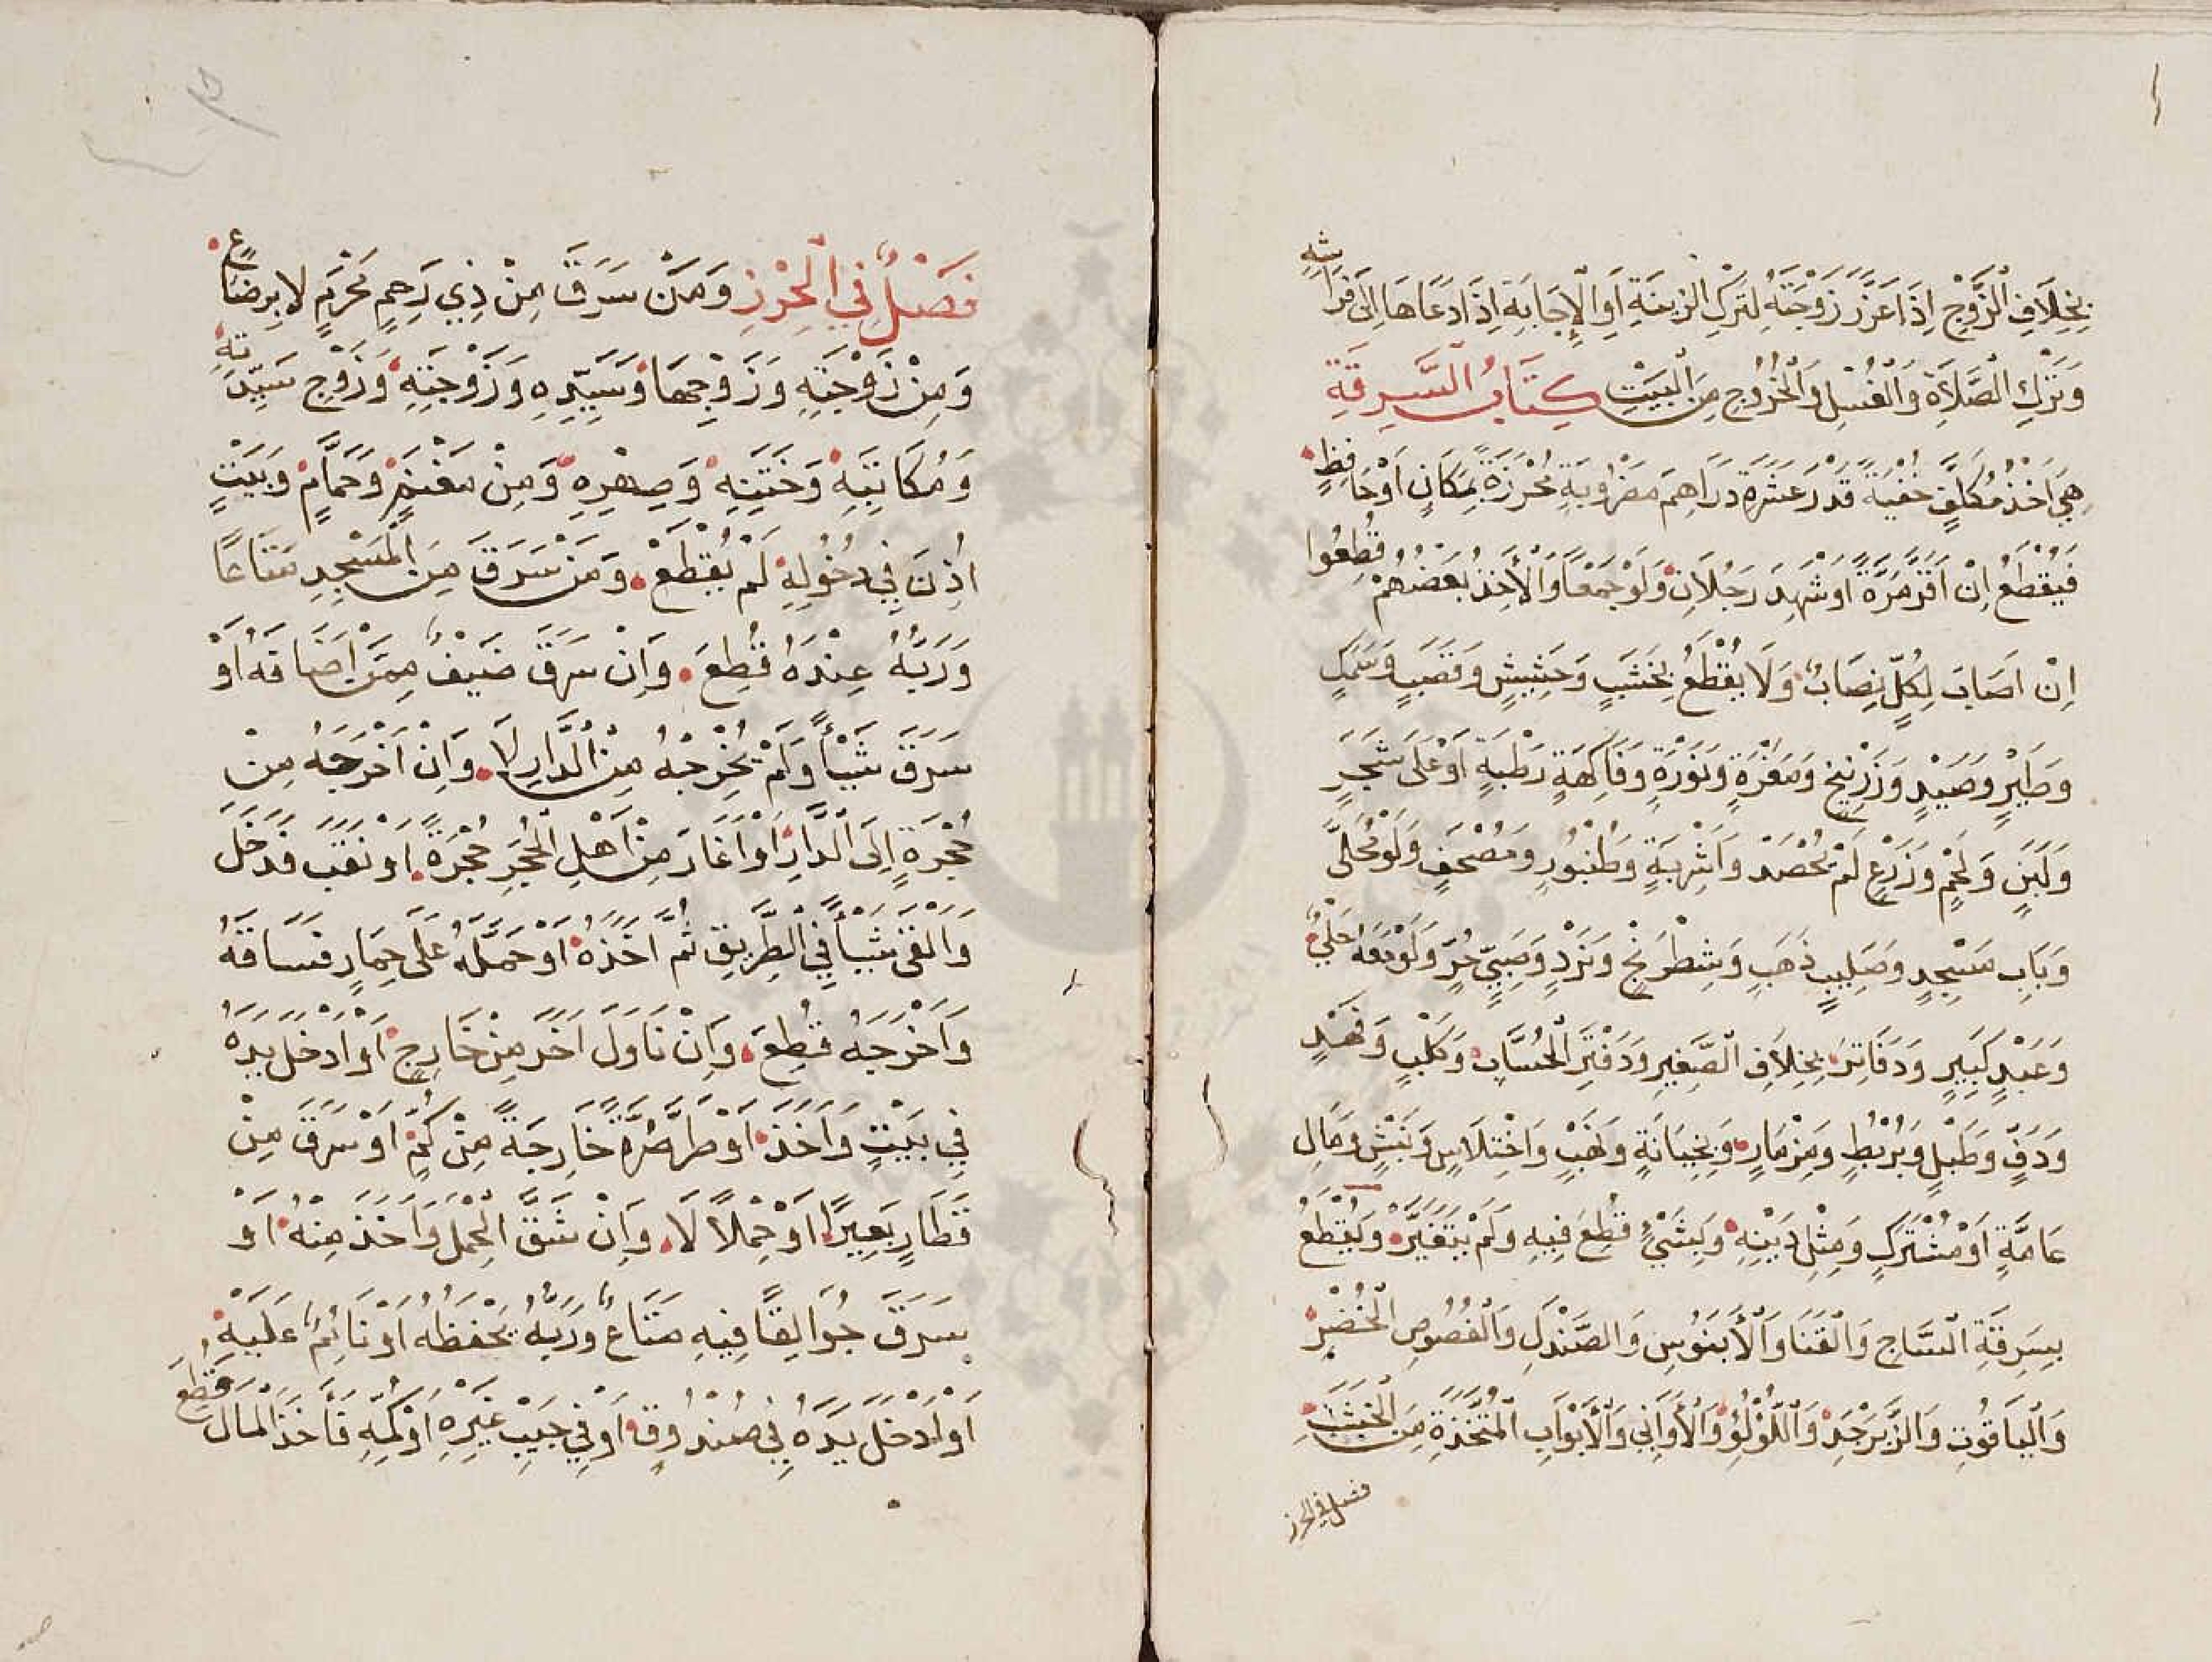 بِخِلَافِ الزَّوْجِ اِذَا عَزَّرَ زَوْجَتَهُ لِتَرْكِ الزِينَةِ اَوِ الْإِجَابَةِ اِذَا دَعَاهَا اِلَى فِرَاشِهِ
وَتَرْكِ الصَّلَاةِ وَالْغُسْلِ وَالْخُرُوجِ مِنَ الْبَيْتِ كِتَابُ السَّرِقَةِ
هِيَ اَخْذُ مُكَلَّفٍ خُفْيَةً قَدْرَ عَشَرَةِ دَرَاهِمَ مَضْرُوبَةٍ مُحْرَزَةً بِمَكَانٍ اَوْ حَافِظٍ
فَيُقْطَعُ اِنْ اَقَرَّ مَرَّةً اَوْ شَهِدَ رَجُلَانِ وَلَوْ جَمْعًا وَالْأَخِذُ بَعْضُهُمْ قُطِعُوا
اِنْ اَصَابَ لِكُلٍّ نِصَابٌ وَلَا يُقْطَعُ بِخَشَبٍ وَحَشِيشٍ وَقَصَبٍ وَسَمَكٍ
وَطَيْرٍ وَصَيْدٍ وَزَرْنِيخٍ وَمَغْرَةٍ وَنَوْرَةٍ وَفَاكِهَةٍ رَطْبَةٍ اَوْ عَلَى شَجَرٍ
وَلَبَنٍ وَلَحْمٍ وَزَرْعٍ لَمْ يُحْصَدْ وَاَشْرِبَةٍ وَطُنْبُورٍ وَمُصْحَفٍ وَلَوْ مُحَلًّى
وَبَابِ مَسْجِدٍ وَصَلِيبِ ذَهَبٍ وَشِطْرَنْجٍ وَنَرْدٍ وَصَبِيٍّ حُرٍّ وَلَوْ مَعَهُ حُلِيٌّ
وَعَبْدٍ كَبِيرٍ وَدَفَاتِرَ بِخِلَافِ الصَّغِيرِ وَدَفْتَرِ الْحُسَّابِ وَكَلْبٍ وَفَهْدٍ
وَدَفٍّ وَطَبْلٍ وَبَرْبَطٍ وَمِزْمَارٍ وَبِخِيَانَةٍ وَنَهْبٍ وَاخْتِلَاسٍ وَنَبْشٍ وَمَالِ
عَامَّةٍ اَوْ مُشْتَرَكٍ وَمِثْلِ دَيْنِهِ وَبِشَيْءٍ قُطِعَ فِيهِ وَلَمْ يَتَغَيَّرْ وَيُقْطَعُ
بِسَرِقَةِ السَّاجِ وَالْقَنَا وَالْأَبَنُوسِ وَالصَّنْدَلِ وَالْفُصُوصِ الْخُضْرِ
وَالْيَاقُوتِ وَالزَّبَرْجَدِ وَاللُّؤْلُؤِ وَالْأَوَانِي وَالْأَبْوَابِ الْمُتَّخَذَةِ مِنَ الْخَشَبِ
فصل في الحرز
فَصْلٌ فِي الْحِرْزِ وَمَنْ سَرَقَ مِنْ ذِي رَحِمٍ مَحْرَمٍ لَا بِرِضَاعٍ
وَمِنْ زَوْجَتِهِ وَزَوْجِهَا وَسَيِّدِهِ وَزَوْجَتِهِ وَزَوْجِ سَيِّدَتِهِ
وَمُكَاتَبِهِ وَخَتَنِهِ وَصِهْرِهِ وَمِنْ مَغْنَمٍ وَحَمَّامٍ وَبَيْتٍ
اُذِنَ فِي دُخُولِهِ لَمْ يُقْطَعْ وَمَنْ سَرَقَ مِنَ الْمَسْجِدِ مَتَاعًا
وَرَبُّهُ عِنْدَهُ قُطِعَ وَاِنْ سَرَقَ ضَيْفٌ مِمَّنْ اَضَافَهُ اَوْ
سَرَقَ شَيْأً وَلَمْ يُخْرِجْهُ مِنَ الدَّارِ لَا وَاِنْ اَخْرَجَهُ مِنْ
حُجْرَةٍ اِلَى الدَّارِ اَوْ اَغَارَ مِنْ اَهْلِ الْحُجَرِ حُجْرَةً اَوْ نَقَبَ فَدَخَلَ
وَاَلْقَى شَيْأً فِي الطَّرِيقِ ثُمَّ اَخَذَهُ اَوْ حَمَّلَهُ عَلَى حِمَارٍ فَسَاقَهُ
وَاَخْرَجَهُ قُطِعَ وَاِنْ نَاوَلَ اَخَرَ مِنْ خَارِجٍ اَوْ اَدْخَلَ يَدَهُ
فِي بَيْتٍ وَاَخَذَ اَوْ طَرَّ صُرَّةً خَارِجَةً مِنْ كُمٍّ اَوْ سَرَقَ مِنْ
قَطَارٍ بَعِيرًا اَوْ حِمْلًا لَا وَاِنْ شَقَّ الْحِمْلَ وَاَخَذَ مِنْهُ اَوْ
سَرَقَ جُوَالِقًا فِيهِ مَتَاعٌ وَرَبُّهُ يَحْفَظُهُ اَوْ نَائِمٌ عَلَيْهِ
اَوْ اَدْخَلَ يَدَهُ فِي صُنْدُوقٍ اَوْ فِي جَيْبِ غَيْرِهِ اَوْ كُمِّهِ فَاَخَذَ الْمَالَ قُطِعَ